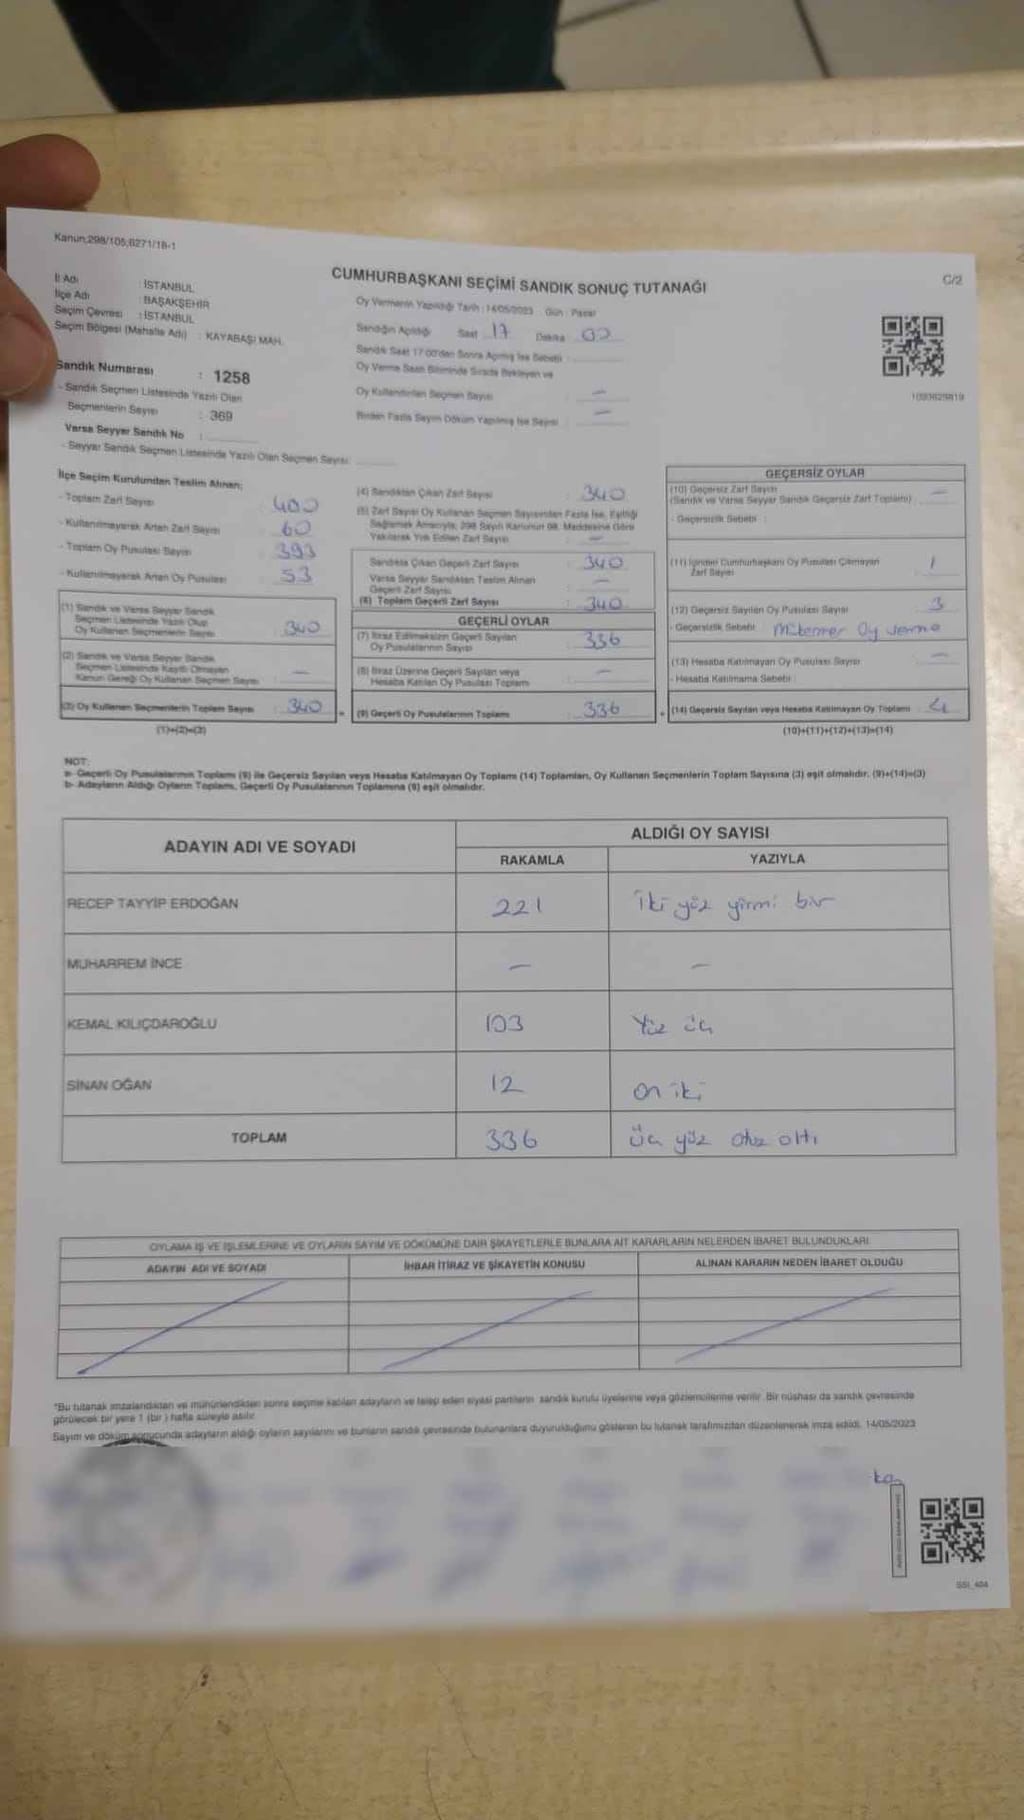 Kanun;298/105;6271/18-1
CUMHURBAŞKANI SEÇİMİ SANDIK SONUÇ TUTANAĞI
C/2
İl Adı : İSTANBUL
İlçe Adı : BAŞAKŞEHİR
Seçim Çevresi : İSTANBUL
Seçim Bölgesi (Mahalle Adı) : KAYABAŞI MAH.
Sandık Numarası : 1258
- Sandık Seçmen Listesinde Yazılı Olan
Seçmenlerin Sayısı : 369
Varsa Seyyar Sandık No :
- Seyyar Sandık Seçmen Listesinde Yazılı Olan Seçmen Sayısı:
Oy Vermenin Yapıldığı Tarih : 14/05/2023 Gün : Pazar
Sandığın Açıldığı Saat 17 Dakika 00
Sandık Saat 17:00'den Sonra Açılmış İse Sebebi :
Oy Verme Saati Bitiminde Sırada Bekleyen ve
Oy Kullandırılan Seçmen Sayısı : —
Birden Fazla Sayım Döküm Yapılmış İse Sayısı : —
1093629819
İlçe Seçim Kurulundan Teslim Alınan;
- Toplam Zarf Sayısı : 400
- Kullanılmayarak Artan Zarf Sayısı : 60
- Toplam Oy Pusulası Sayısı : 393
- Kullanılmayarak Artan Oy Pusulası : 53
(1) Sandık ve Varsa Seyyar Sandık
Seçmen Listesinde Yazılı Olup
Oy Kullanan Seçmenlerin Sayısı : 340
(2) Sandık ve Varsa Seyyar Sandık
Seçmen Listesinde Kayıtlı Olmayan
Kanun Gereği Oy Kullanan Seçmen Sayısı : —
(3) Oy Kullanan Seçmenlerin Toplam Sayısı : 340
(1)+(2)=(3)
(4) Sandıktan Çıkan Zarf Sayısı : 340
(5) Zarf Sayısı Oy Kullanan Seçmen Sayısından Fazla İse, Eşitliği
Sağlamak Amacıyla, 298 Sayılı Kanunun 98. Maddesine Göre
Yakılarak Yok Edilen Zarf Sayısı : —
Sandıkta Çıkan Geçerli Zarf Sayısı : 340
Varsa Seyyar Sandıktan Teslim Alınan
Geçerli Zarf Sayısı : —
(6) Toplam Geçerli Zarf Sayısı : 340
GEÇERLİ OYLAR
(7) İtiraz Edilmeksizin Geçerli Sayılan
Oy Pusulalarının Sayısı : 336
(8) İtiraz Üzerine Geçerli Sayılan veya
Hesaba Katılan Oy Pusulası Toplamı : —
= (9) Geçerli Oy Pusulalarının Toplamı : 336
GEÇERSİZ OYLAR
(10) Geçersiz Zarf Sayısı
(Sandık ve Varsa Seyyar Sandık Geçersiz Zarf Toplamı) : —
- Geçersizlik Sebebi :
(11) İçinden Cumhurbaşkanı Oy Pusulası Çıkmayan
Zarf Sayısı : 1
(12) Geçersiz Sayılan Oy Pusulası Sayısı : 3
- Geçersizlik Sebebi : Mükerrer Oy verme
(13) Hesaba Katılmayan Oy Pusulası Sayısı : —
- Hesaba Katılmama Sebebi :
+ (14) Geçersiz Sayılan veya Hesaba Katılmayan Oy Toplamı : 4
(10)+(11)+(12)+(13)=(14)
NOT:
a- Geçerli Oy Pusulalarının Toplamı (9) ile Geçersiz Sayılan veya Hesaba Katılmayan Oy Toplamı (14) Toplamları, Oy Kullanan Seçmenlerin Toplam Sayısına (3) eşit olmalıdır. (9)+(14)=(3)
b- Adayların Aldığı Oyların Toplamı, Geçerli Oy Pusulalarının Toplamına (9) eşit olmalıdır.
ADAYIN ADI VE SOYADI
ALDIĞI OY SAYISI
RAKAMLA YAZIYLA
RECEP TAYYİP ERDOĞAN 221 İki yüz yirmi bir
MUHARREM İNCE — —
KEMAL KILIÇDAROĞLU 103 Yüz üç
SİNAN OĞAN 12 on iki
TOPLAM 336 Üç yüz otuz altı
OYLAMA İŞ VE İŞLEMLERİNE VE OYLARIN SAYIM VE DÖKÜMÜNE DAİR ŞİKAYETLERLE BUNLARA AİT KARARLARIN NELERDEN İBARET BULUNDUKLARI
ADAYIN ADI VE SOYADI İHBAR İTİRAZ VE ŞİKAYETİN KONUSU ALINAN KARARIN NEDEN İBARET OLDUĞU
*Bu tutanak imzalandıktan ve mühürlendikten sonra seçime katılan adayların ve talep eden siyasi partilerin sandık kurulu üyelerine veya gözlemcilerine verilir. Bir nüshası da sandık çevresinde
görülecek bir yere 1 (bir) hafta süreyle asılır.
Sayım ve döküm sonucunda adayların aldığı oyların sayılarını ve bunların sandık çevresinde bulunanlara duyurulduğunu gösteren bu tutanak tarafımızdan düzenlenerek imza edildi. 14/05/2023